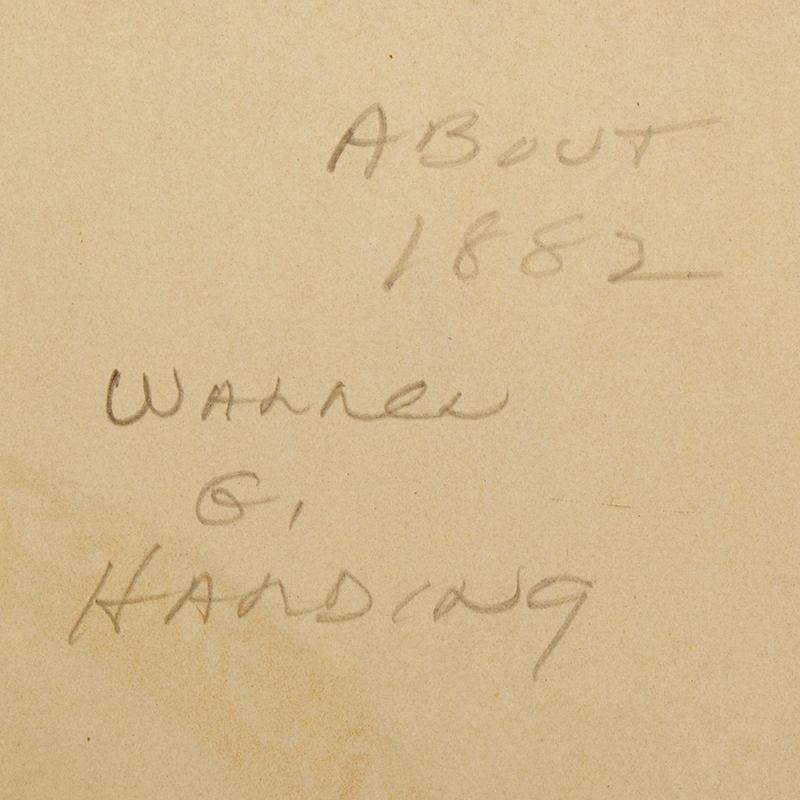 ABOUT
1882
WARREN
G.
HARDING